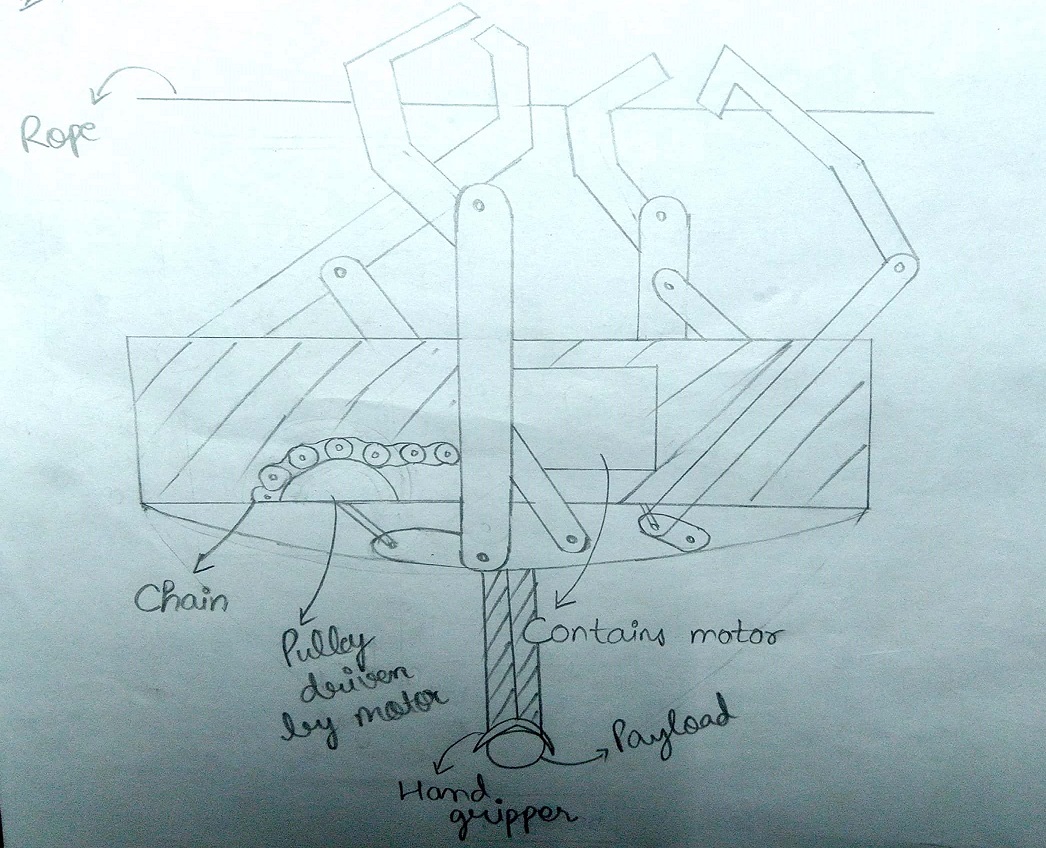 Rope
Chain
Pulley
driven
by motor
Contains motor
Payload
Hand
gripper